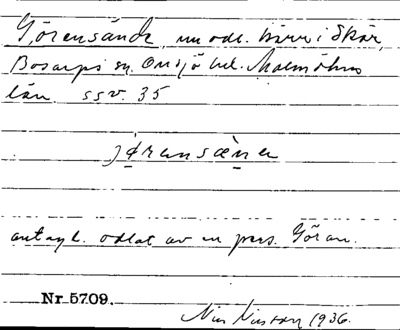 Görensände, nu odl. kärr i Skär,
Bosarps sn. Onsjö hd. Malmöhus
län. SSV. 35
jørensænə
antagl. odlat av en pers. Göran.
Nr. 5709.
Nils Nilsson 1936.